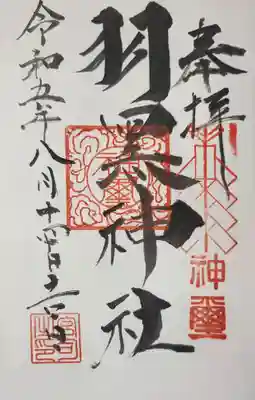 奉拝
羽黒神社
令和五年八月十四日
神璽